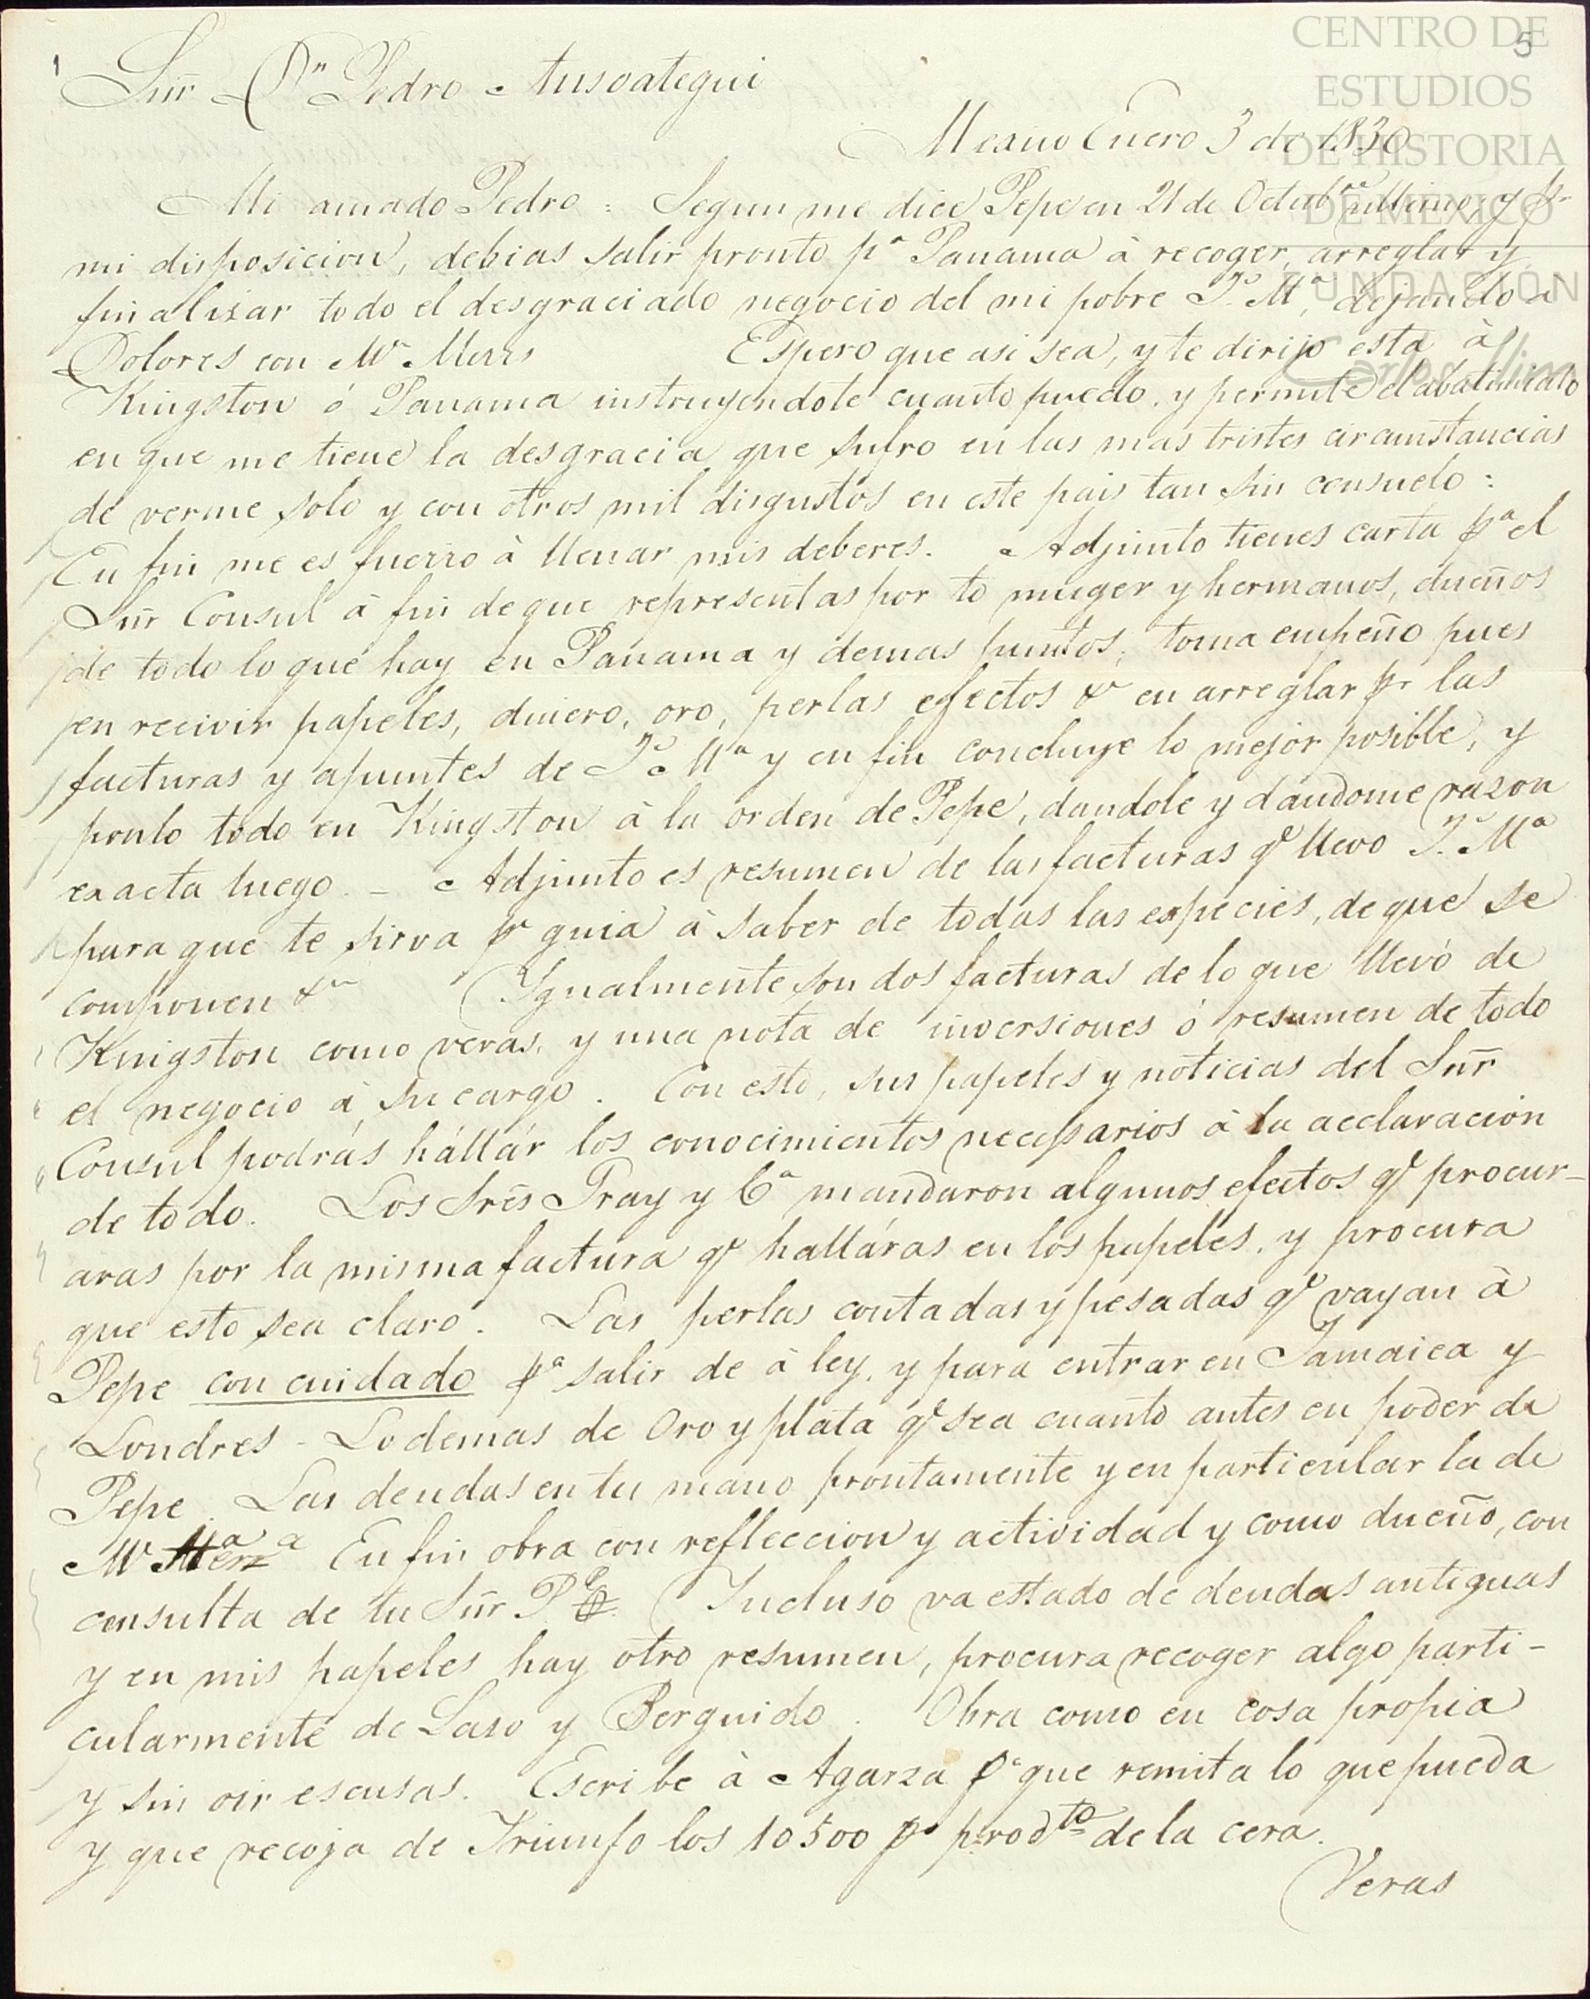 CENTRO DE
ESTUDIOS
DE HISTORIA
DE MEXICO
FUNDACIÓN
Carlos Slim
1
5
Sñr Dn Pedro Ansoategui
Mexico Enero 3 de 1830
Mi amado Pedro : Segun me dice Pepe en 21 de Octubre ultimo, y pr
mi disposicion, debias salir pronto pa Panama à recoger, arreglar y
finalizar todo el desgraciado negocio del mi pobre Je Ma, dejando a
Dolores con Mr Espero que asi sea, y te dirijo esta à
Kingston ó Panama instruyendote cuanto puedo, y permite el abatimiento
en que me tiene la desgracia que sufro en las mas tristes circunstancias
de verme solo y con otros mil disgustos en este pais tan sin consuelo :
En fin me es fuerzo à llenar mis deberes. Adjunto tienes carta pa el
Sñr Consul à fin de que representas por tu muger y hermanos, dueños
de todo lo que hay en Panama y demas puntos; toma empeño pues
en recivir papeles, dinero, oro, perlas efectos &a en arreglar pr las
facturas y apuntes de Je Ma y en fin concluye lo mejor posible, y
ponlo todo en Kingston à la orden de Pepe, dandole y dandome razon
exacta luego. - Adjunto es resumen de las facturas qe llevo Je Ma
para que te sirva pr guia à saber de todas las especies, de que se
componen &a Igualmente son dos facturas de lo que llevó de
Kingston como veras, y una nota de inversiones ó resumen de todo
el negocio à su cargo. Con esto, sus papeles y noticias del Sñr
Consul podrás hállár los conocimientos necessarios à la acclaración
de todo. Los Sres Pray y Ca mandaron algunos efectos qe procur-
aras por la misma factura qe halláras en los papeles, y procura
que esto sea claro. Las perlas contadas y pesadas qe vayan à
Pepe con cuidado pa salir de à ley, y para entrar en Jamaica y
Londres - Lo demas de Oro y plata qe sea cuanto antes en poder de
Pepe. Las deudas en tu mano prontamente y en particular la de
En fin obra con refleccion y actividad y como dueño, con
consulta de tu Sñr Incluso va estado de deudas antiguas
y en mis papeles hay otro resumen, procura recoger algo parti-
cularmente de Laso y Berguido. Obra como en cosa propia
y sin oir escusas. Escribe à Agarza pa que remita lo que pueda
y que recoja de Triunfo los 10500 ps prodto de la cera.
Veras